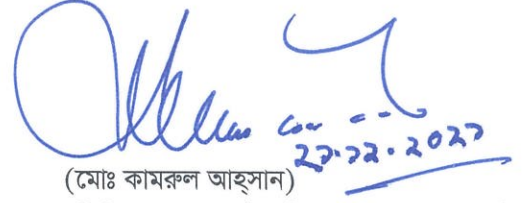 ২১.১২.২০২১
(মোঃ কামরুল আহ্‌সান)